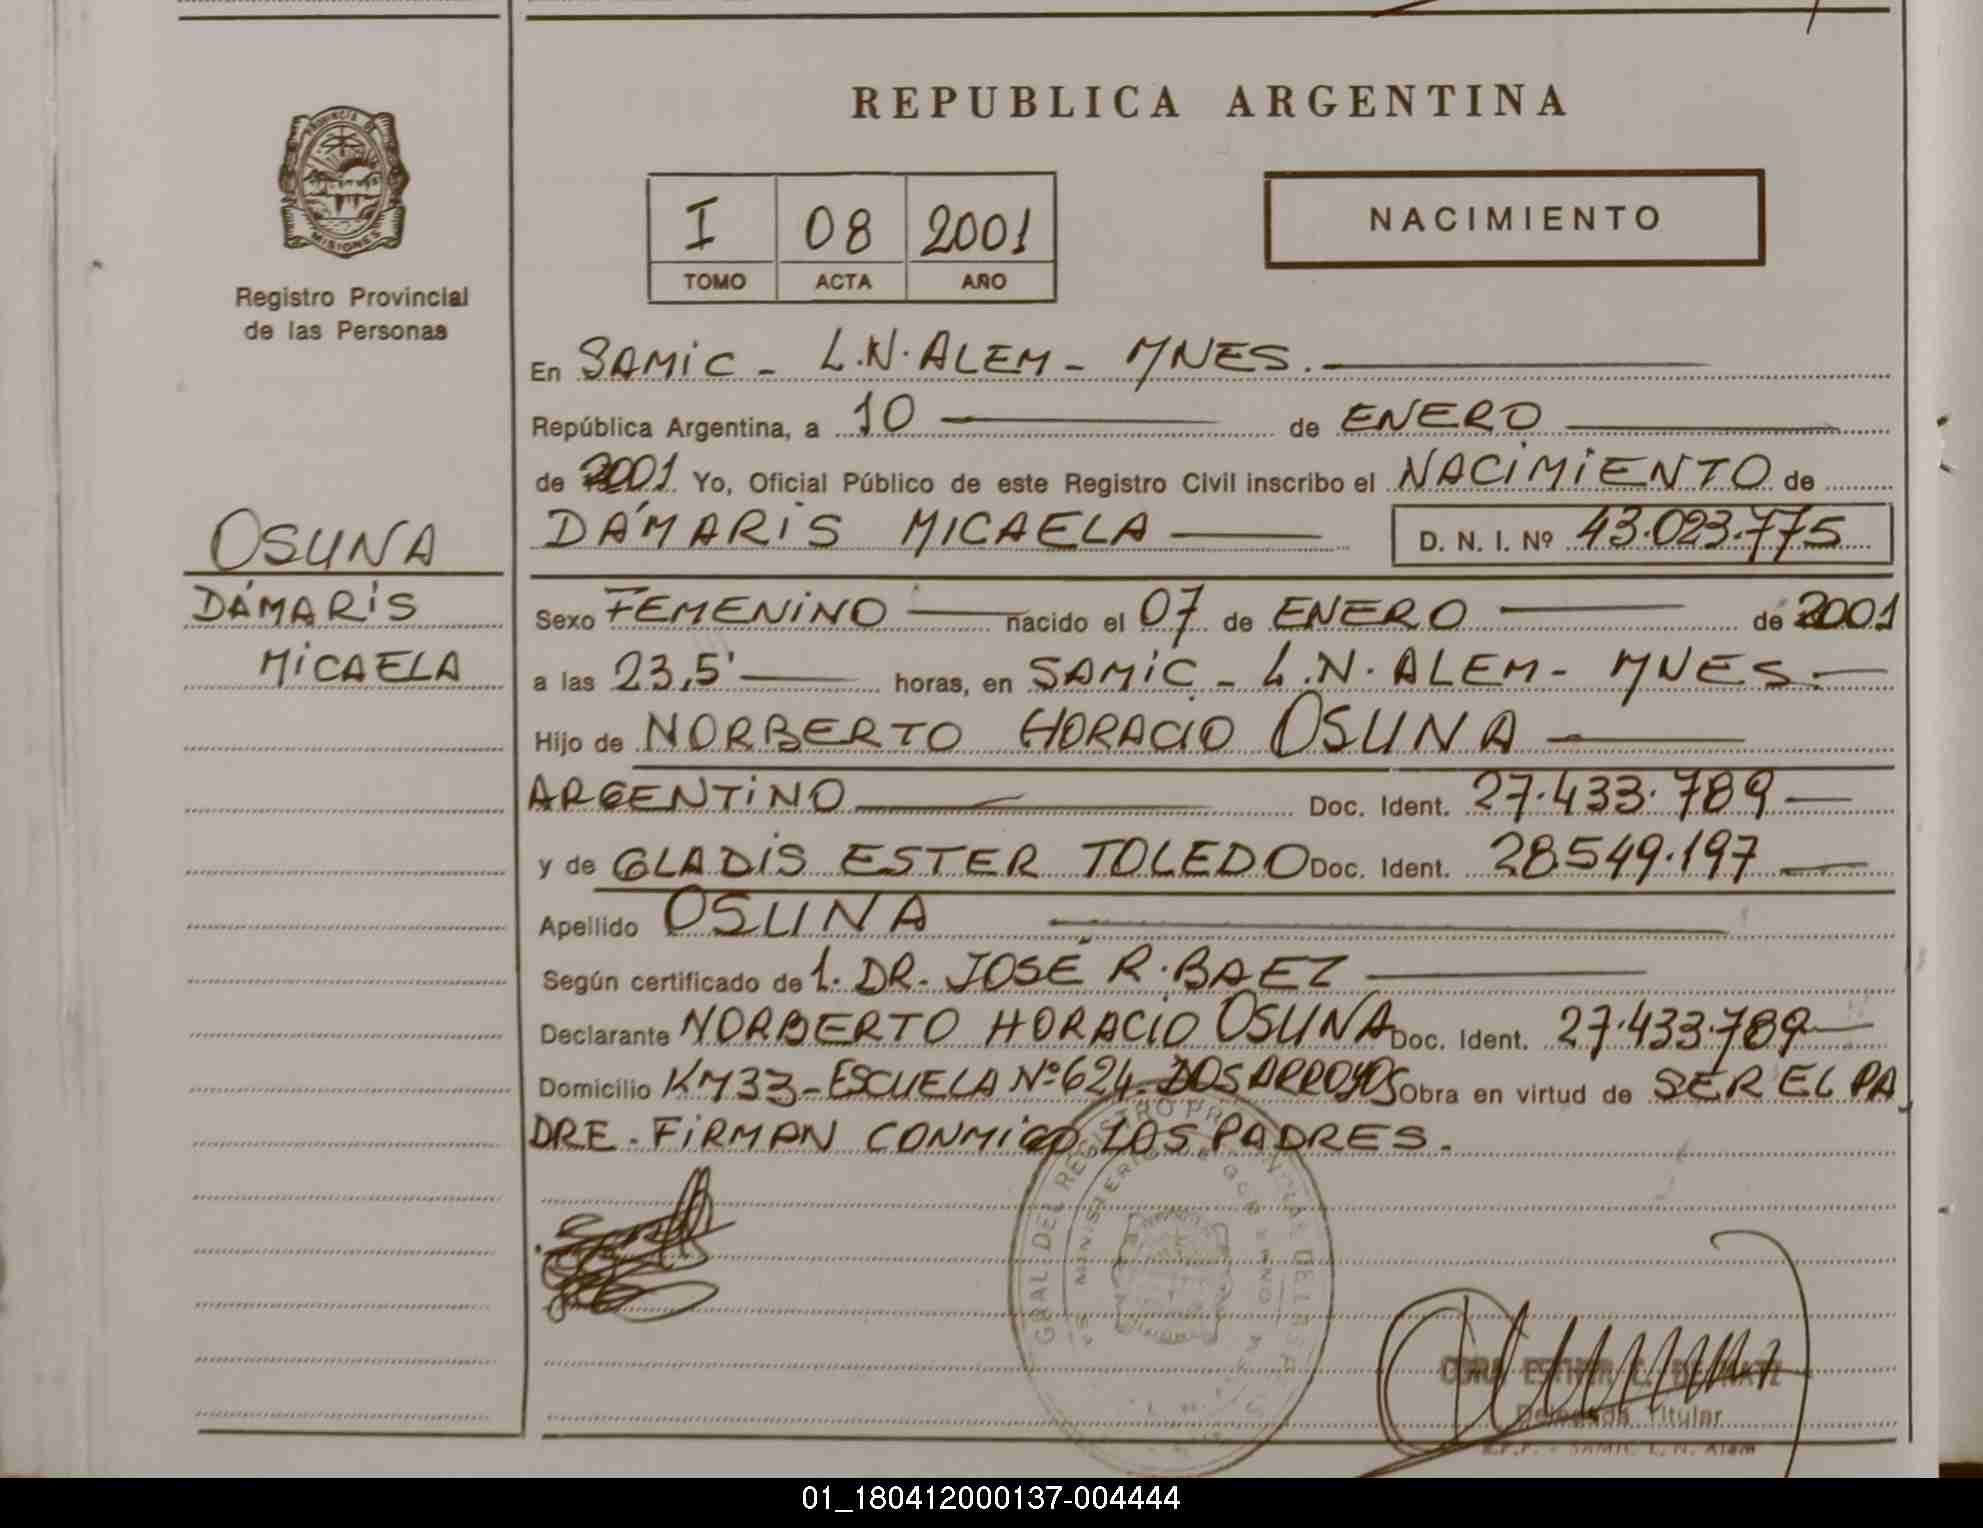 REPUBLICA ARGENTINA
PROVINCIA DE
MISIONES
Registro Provincial
de las Personas
I 08 2001
TOMO ACTA AÑO
NACIMIENTO
En SAMIC - L.N. ALEM - MNES.
República Argentina, a 10 de ENERO
de 2001 Yo, Oficial Público de este Registro Civil inscribo el NACIMIENTO de
DÁMARIS MICAELA D. N. I. Nº 43.023.775
OSUNA
DÁMARIS
MICAELA
Sexo FEMENINO nacido el 07 de ENERO de 2001
a las 23,5' horas, en SAMIC - L.N. ALEM - MNES.
Hijo de NORBERTO HORACIO OSUNA
ARGENTINO Doc. Ident. 27.433.789
y de GLADIS ESTER TOLEDO Doc. Ident. 28.549.197
Apellido OSUNA
Según certificado de 1. DR. JOSÉ R. BAEZ
Declarante NORBERTO HORACIO OSUNA Doc. Ident. 27.433.789
Domicilio KM 33 - ESCUELA Nº 624 - DOS ARROYOS Obra en virtud de SER EL PA
DRE. FIRMAN CONMIGO LOS PADRES.
GRAL DEL REGISTRO
MINISTERIO DE
ESTHER
Delegada Titular
SAMIC. L. N. Alem
01_180412000137-004444